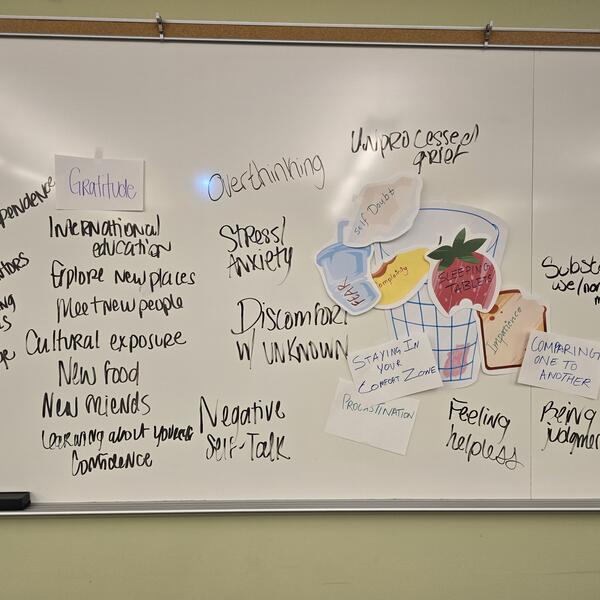 Gratitude
International
education
Explore new places
Meet new people
Cultural exposure
New food
New friends
Learning about yourself
Confidence
Overthinking
Stress/
Anxiety
Discomfort
w/ unknown
Negative
Self-Talk
Unprocessed
grief
Self Doubt
FEAR
Complaining
SLEEPING
TABLETS
Impatience
STAYING IN
YOUR
COMFORT ZONE
PROCASTINATION
Feeling
helpless
COMPARING
ONE TO
ANOTHER
Being